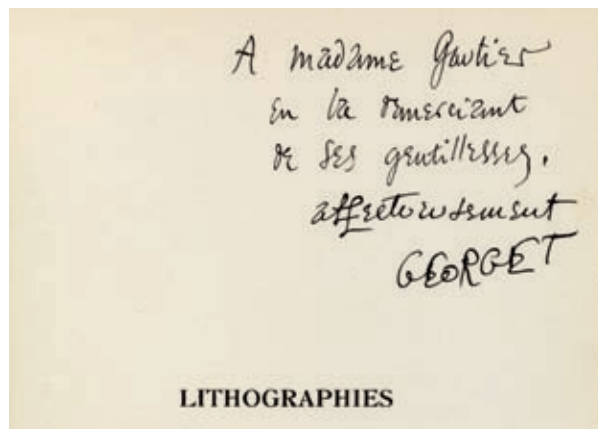 A madame Gautier
en la remerciant
de ses gentillesses.
affectueusement
GEORGET
LITHOGRAPHIES